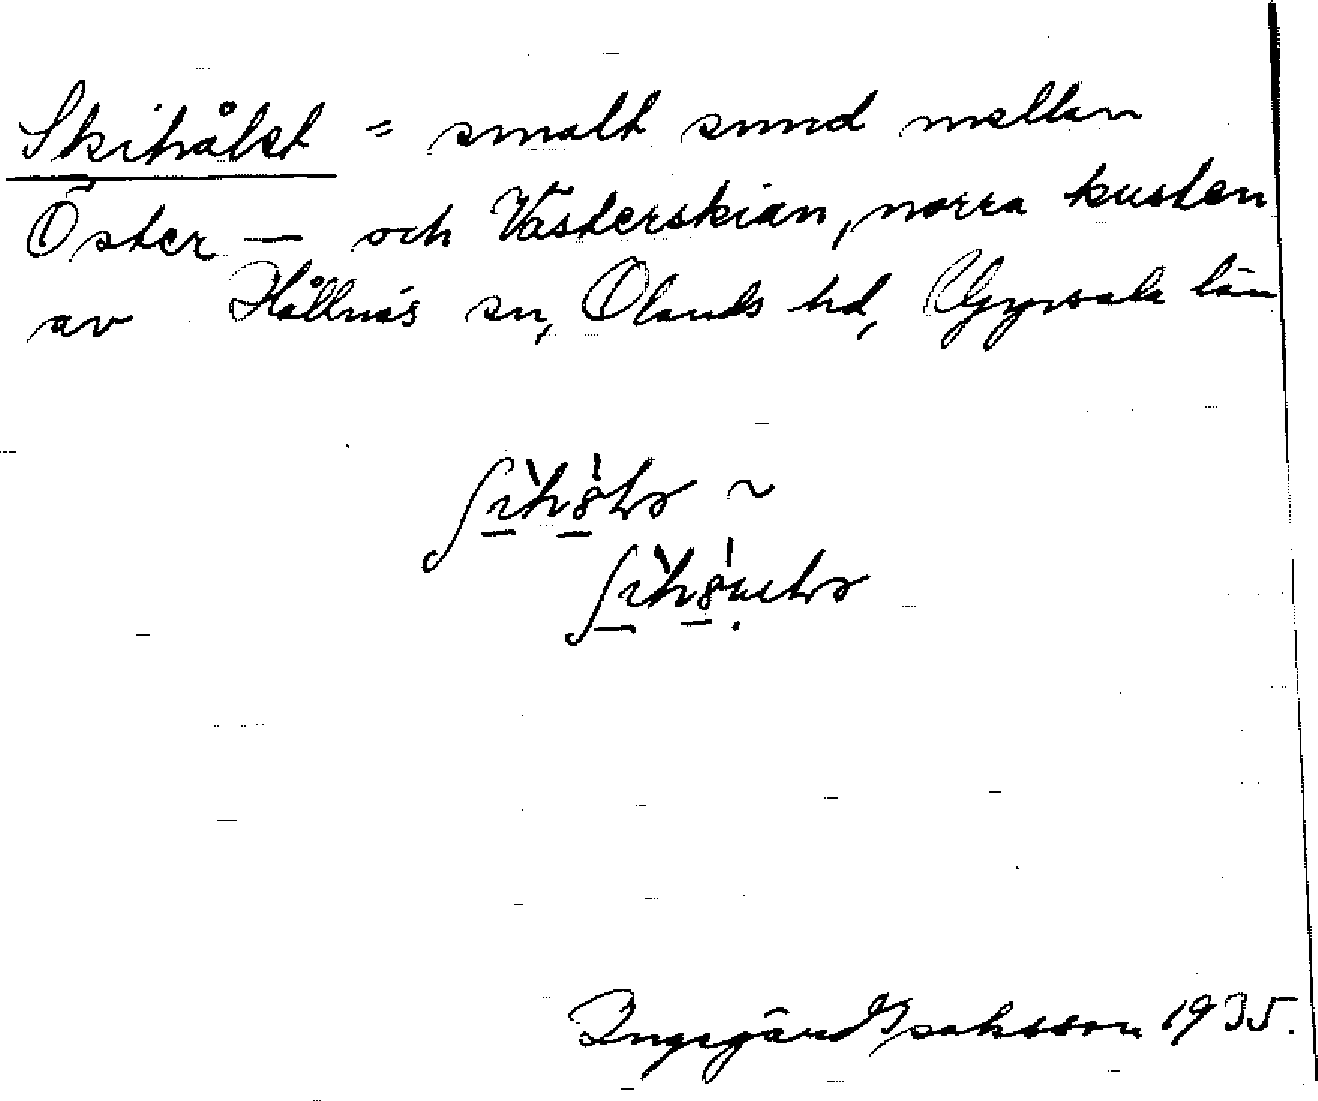 Skihålet = smalt sund mellan
Öster — och Västerskian, norra kusten
av Hållnäs sn, Olands hd, Uppsala län
~
Ingegärd Isaksson 1935.